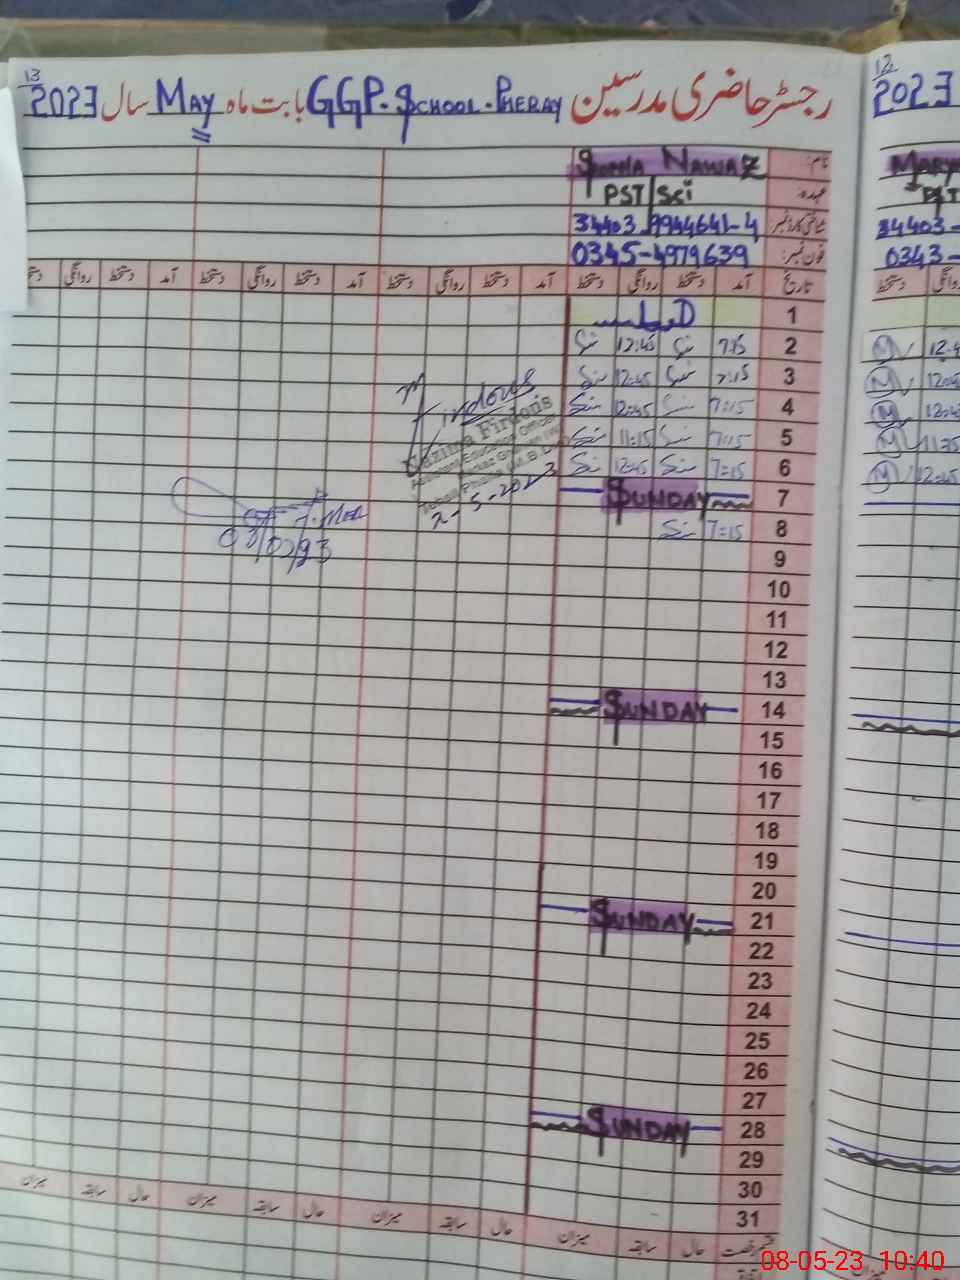 رجسٹر حاضری مدرسین GGP. SCHOOL. PHERAY بابت ماہ MAY سال 2023
13
12
2023
نام: NAWAZ
MARY
عہدہ: PST/Sci
PST
شناختی کارڈ نمبر: 34403-9944641-4
34403-
فون نمبر: 0345-4979639
0343-
تاریخ آمد دستخط روانگی دستخط آمد دستخط روانگی دستخط آمد دستخط روانگی دستخط
1
2 7:15 12:45
3 7:15 12:45
4 7:15 12:45
5 7:15 11:15
6 7:15 12:45
7 SUNDAY
8 7:15
9
10
11
12
13
14 SUNDAY
15
16
17
18
19
20
21 SUNDAY
22
23
24
25
26
27
28 SUNDAY
29
30
31
Firdous
Nazima Firdous
Assistant Education Officer
2-5-2023
حال سابقہ میزان حال سابقہ میزان حال سابقہ میزان حال سابقہ میزان
08-05-23 10:40